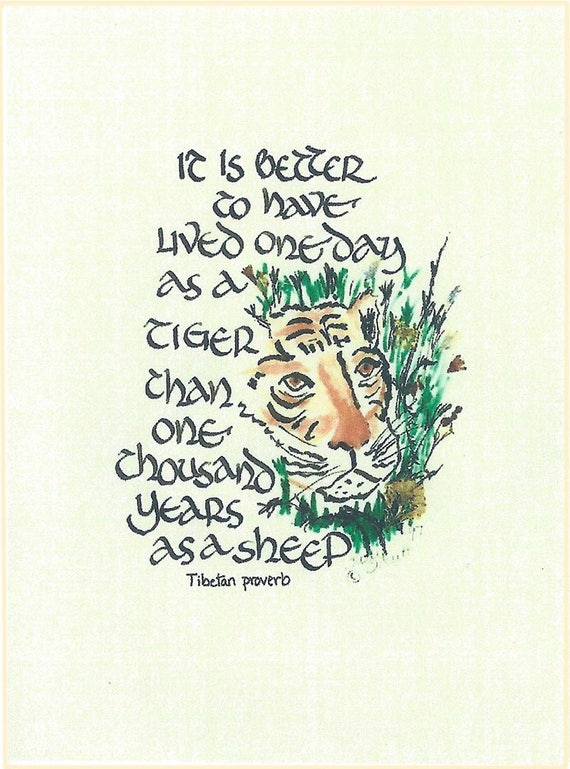 It is better
to have
lived one day
as a
tiger
than
one
thousand
years
as a sheep
Tibetan proverb
©